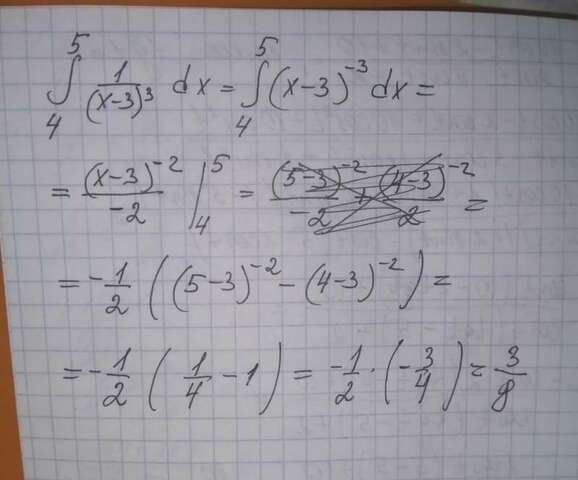 ∫₄⁵ 1/(x-3)³ dx = ∫₄⁵ (x-3)⁻³ dx =
= (x-3)⁻²/-2 |₄⁵ = (5-3)⁻²/-2 + (4-3)⁻²/2 =
= -1/2 ((5-3)⁻² - (4-3)⁻²) =
= -1/2 (1/4 - 1) = -1/2 · (-3/4) = 3/8